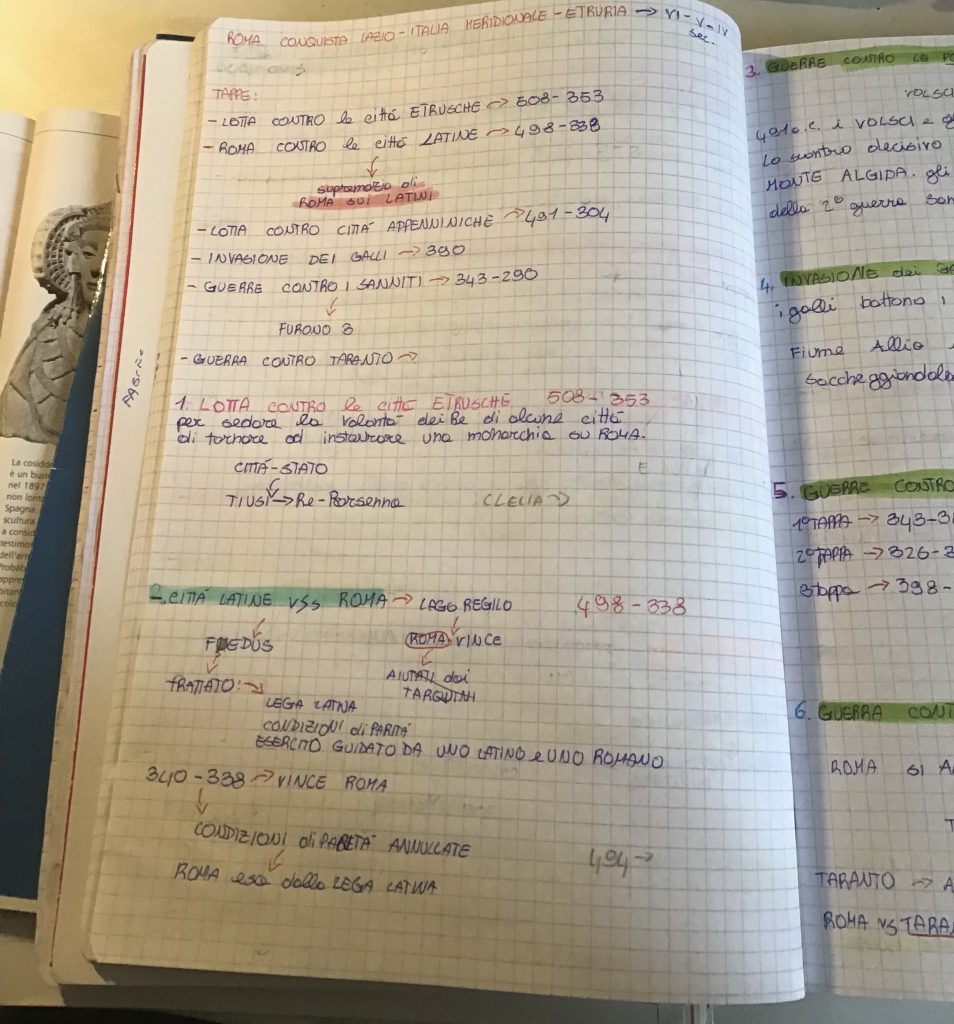 ROMA CONQUISTA LAZIO - ITALIA MERIDIONALE - ETRURIA → VI - V - IV sec.
TAPPE:
- LOTTA CONTRO le città ETRUSCHE → 508 - 353
- ROMA CONTRO le città LATINE → 498 - 338
sopramozio di
ROMA SUI LATINI
- LOTTA CONTRO CITTÀ APPENNINICHE → 491 - 304
- INVASIONE DEI GALLI → 390
- GUERRE CONTRO I SANNITI → 343 - 290
FURONO 3
- GUERRA CONTRO TARANTO →
1. LOTTA CONTRO le città ETRUSCHE 508 - 353
per sedare la volontà dei Re di alcune città
di tornare ad instaurare una monarchia su ROMA.
CITTÀ-STATO
E
TIUSI → Re - Porsenna
CLELIA →
2. CITTÀ LATINE VSS ROMA → LAGO REGILO 498 - 338
FOEDUS
ROMA VINCE
TRATTATO: →
AIUTATI dai
TARQUINI
LEGA LATINA
CONDIZIONI di PARITÀ
ESERCITO GUIDATO DA UNO LATINO e UNO ROMANO
340 - 338 → VINCE ROMA
CONDIZIONI di PARITÀ ANNULLATE
494 →
ROMA esce dalla LEGA LATINA
3. GUERRE CONTRO LE
VOLSCI
491 a.C. i VOLSCI e
Lo scontro decisivo
MONTE ALGIDA. gli
della 2° guerra
4. INVASIONE dei
i galli battono i
FIUME Allio
saccheggiandola
5. GUERRE CONTRO
1° TAPPA → 343 -
2° TAPPA → 326 -
3 tappa → 398 -
6. GUERRA
ROMA SI
TARANTO →
ROMA VS
La cosidde
è un bust
nel 1897
non lont
Spagna.
scultura
a consid
testimo
dell'art
Probab
appre